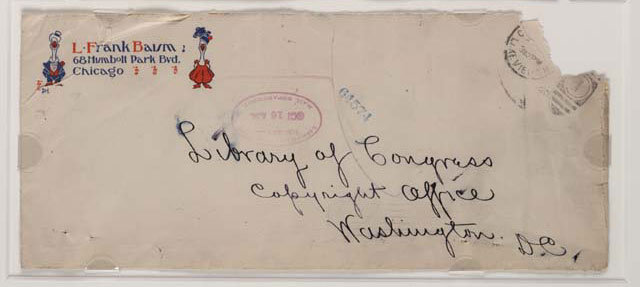 L. Frank Baum;
68 Humbolt Park Bvd.
Chicago
61574
Library of Congress
Copyright Office
Washington.
D.C.